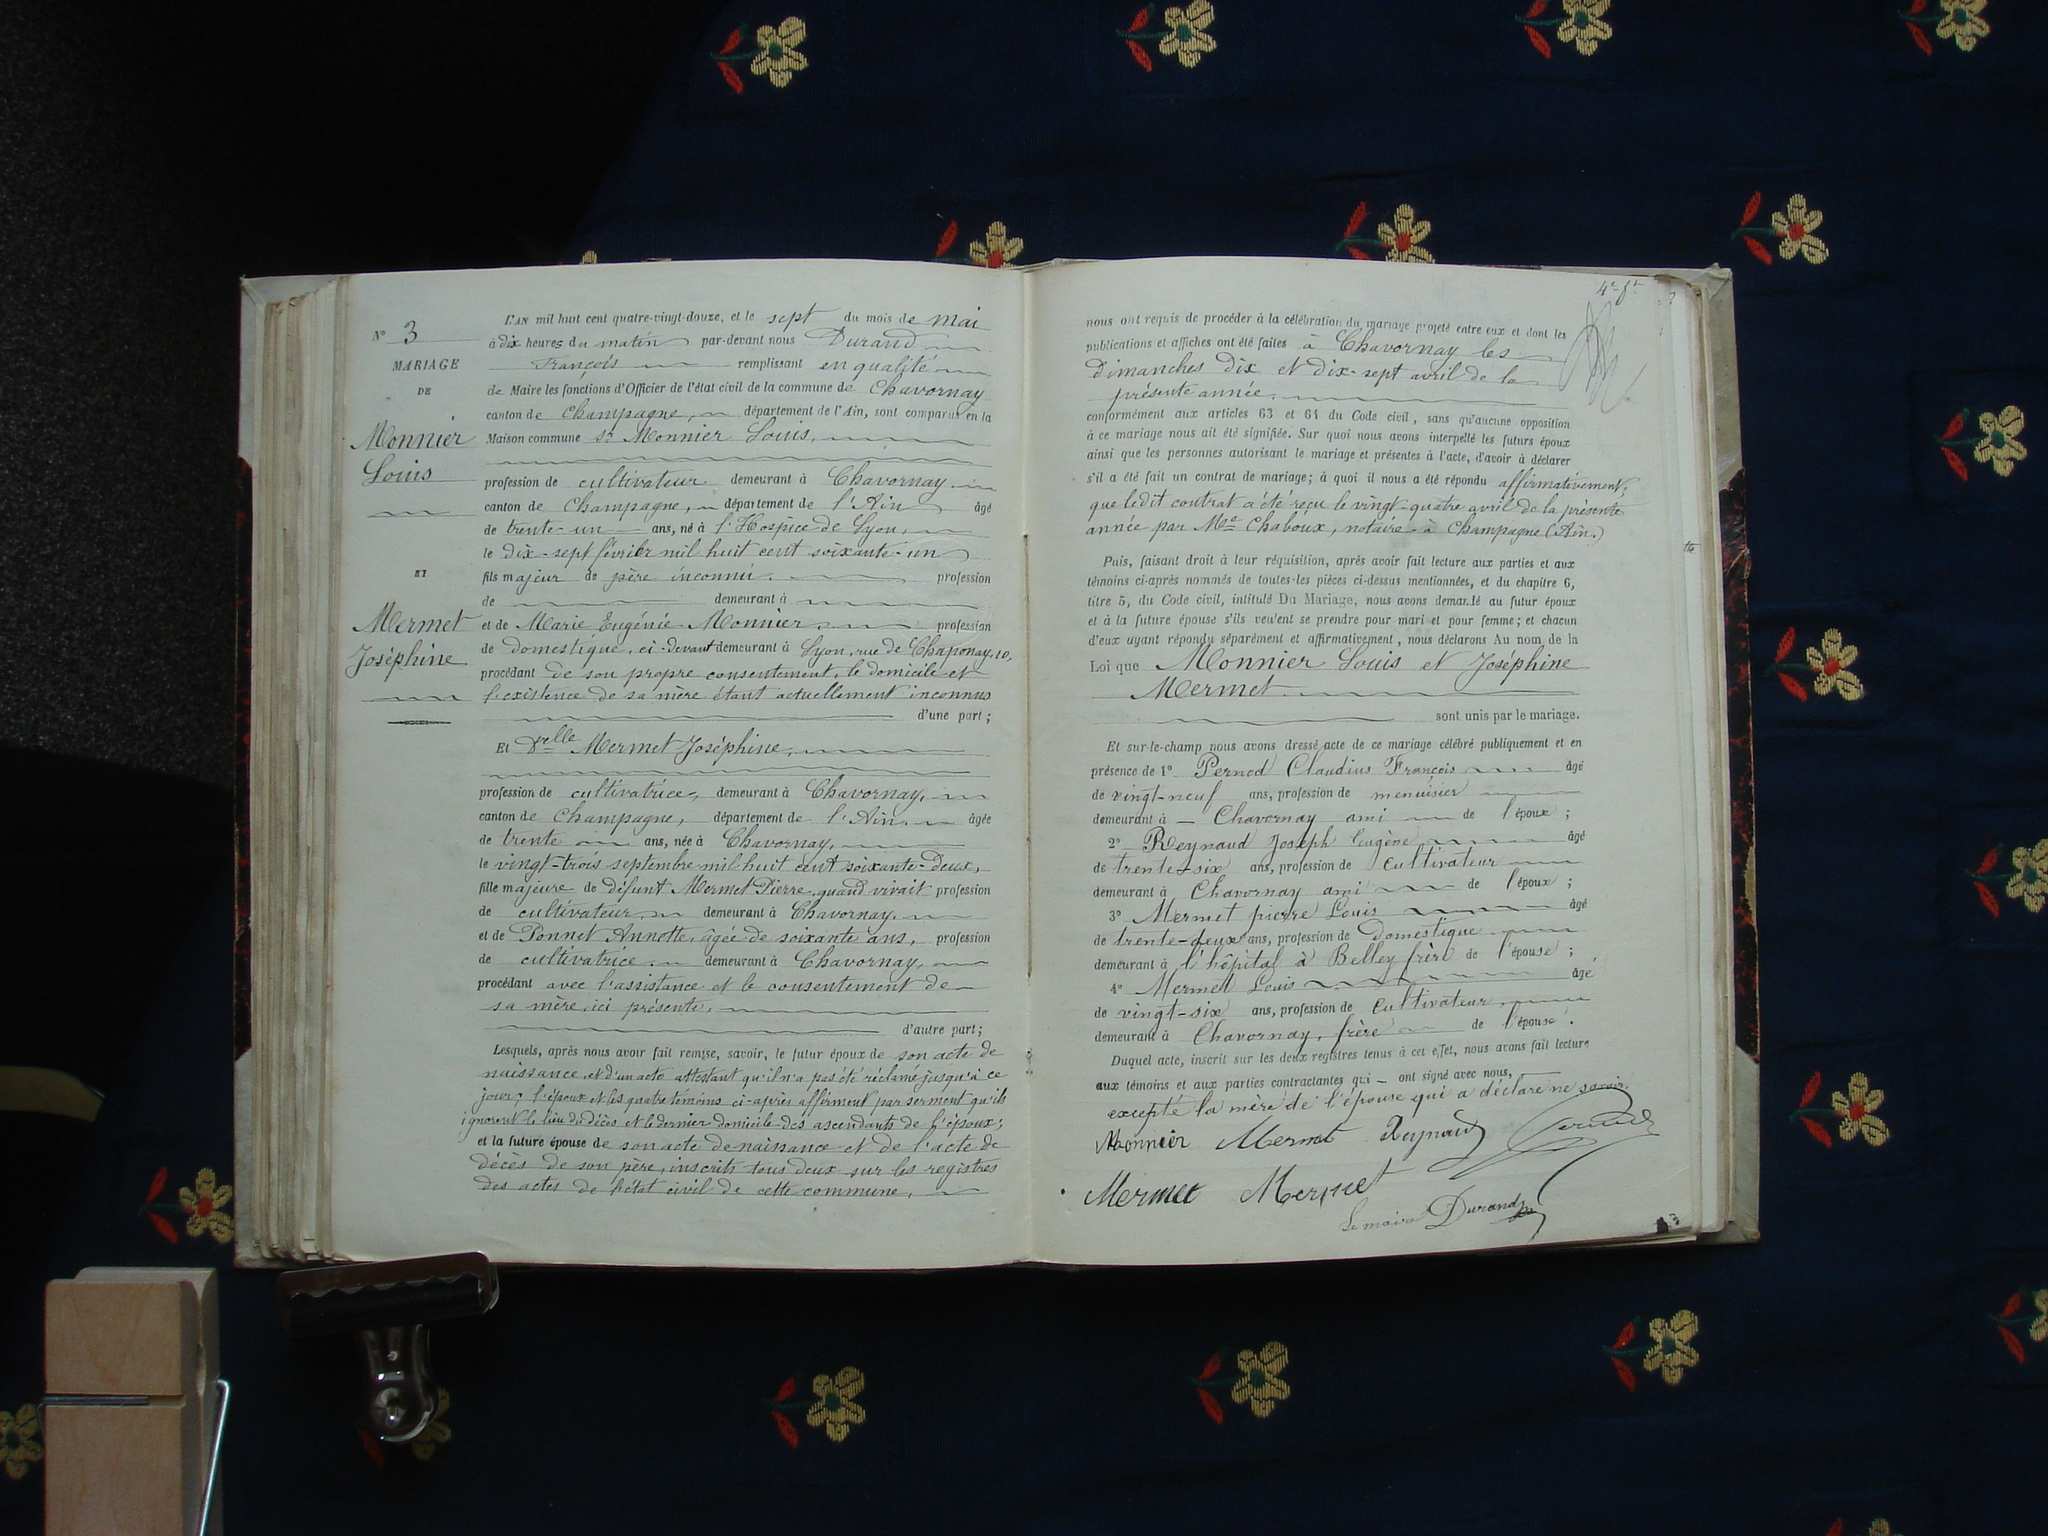 N° 3
MARIAGE
DE
Monnier
Louis
ET
Mermet
Joséphine
L'AN mil huit cent quatre-vingt-douze, et le sept du mois de mai
à dix heures du matin par-devant nous Durand
François remplissant en qualité
de Maire les fonctions d'Officier de l'état civil de la commune de Chavornay
canton de Champagne, département de l'Ain, sont comparus en la
Maison commune sr Monnier Louis,
profession de cultivateur demeurant à Chavornay
canton de Champagne, département de l'Ain âgé
de trente-un ans, né à l'Hospice de Lyon,
le dix-sept février mil huit cent soixante-un
fils majeur de père inconnu. profession
de demeurant à
et de Marie Eugénie Monnier, profession
de domestique, ci-devant demeurant à Lyon, rue de Chaponay, 10,
procédant de son propre consentement, le domicile et
l'existence de sa mère étant actuellement inconnus
d'une part;
Et Dvelle Mermet Joséphine,
profession de cultivatrice, demeurant à Chavornay,
canton de Champagne, département de l'Ain, âgée
de trente ans, née à Chavornay,
le vingt-trois septembre mil huit cent soixante-deux,
fille majeure de défunt Mermet Pierre, quand vivait profession
de cultivateur demeurant à Chavornay,
et de Ponnet Annette, âgée de soixante ans, profession
de cultivatrice demeurant à Chavornay,
procédant avec l'assistance et le consentement de
sa mère, ici présente,
d'autre part;
Lesquels, après nous avoir fait remise, savoir, le futur époux de son acte de
naissance, et d'un acte attestant qu'il n'a pas été réclamé jusqu'à ce
jour; l'époux et les quatre témoins ci-après affirment par serment qu'ils
ignorent le lieu du décès et le dernier domicile des ascendants de l'époux;
et la future épouse de son acte de naissance et de l'acte de
décès de son père, inscrits tous deux sur les registres
des actes de l'état civil de cette commune,
nous ont requis de procéder à la célébration du mariage projeté entre eux et dont les
publications et affiches ont été faites à Chavornay les
Dimanches dix et dix-sept avril de la
présente année,
conformément aux articles 63 et 64 du Code civil, sans qu'aucune opposition
à ce mariage nous ait été signifiée. Sur quoi nous avons interpellé les futurs époux
ainsi que les personnes autorisant le mariage et présentes à l'acte, d'avoir à déclarer
s'il a été fait un contrat de mariage; à quoi il nous a été répondu affirmativement;
que le dit contrat a été reçu le vingt-quatre avril de la présente
année par Me Chaboux, notaire à Champagne (Ain.)
Puis, faisant droit à leur réquisition, après avoir fait lecture aux parties et aux
témoins ci-après nommés de toutes les pièces ci-dessus mentionnées, et du chapitre 6,
titre 5, du Code civil, intitulé Du Mariage, nous avons demandé au futur époux
et à la future épouse s'ils veulent se prendre pour mari et pour femme; et chacun
d'eux ayant répondu séparément et affirmativement, nous déclarons Au nom de la
Loi que Monnier Louis et Joséphine
Mermet
sont unis par le mariage.
Et sur-le-champ nous avons dressé acte de ce mariage célébré publiquement et en
présence de 1° Pernod Claudius François âgé
de vingt-neuf ans, profession de menuisier
demeurant à Chavornay ami de l'époux;
2° Reynaud Joseph Eugène âgé
de trente-six ans, profession de cultivateur
demeurant à Chavornay ami de l'époux;
3° Mermet pierre Louis âgé
de trente-deux ans, profession de Domestique
demeurant à l'hôpital à Belley frère de l'épouse;
4° Mermet Louis âgé
de vingt-six ans, profession de cultivateur
demeurant à Chavornay, frère de l'épouse.
Duquel acte, inscrit sur les deux registres tenus à cet effet, nous avons fait lecture
aux témoins et aux parties contractantes qui ont signé avec nous,
excepté la mère de l'épouse qui a déclaré ne savoir.
Monnier Mermet Reynaud
Mermet Mermet
Le maire Durand